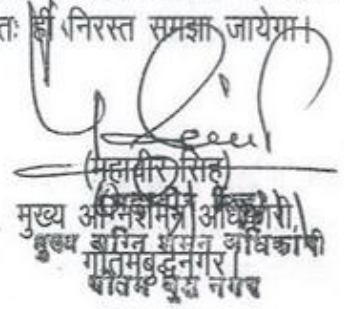 तः ही निरस्त समझा जायेगा।
(महावीर सिंह)
मुख्य अग्निशमन अधिकारी,
मुख्य अग्नि शमन अधिकारी
गौतमबुद्धनगर।
गौतम बुद्ध नगर